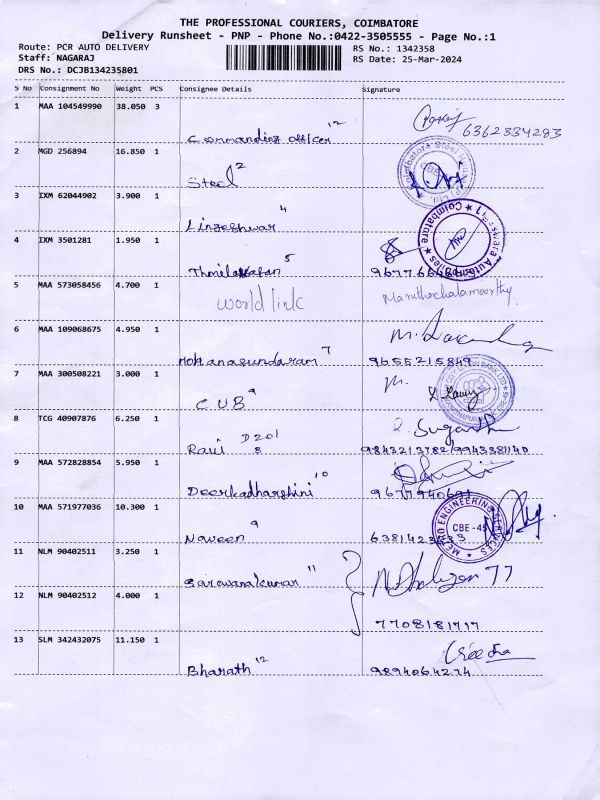 THE PROFESSIONAL COURIERS, COIMBATORE
Delivery Runsheet - PNP - Phone No.:0422-3505555 - Page No.:1
Route: PCR AUTO DELIVERY
RS No.: 1342358
Staff: NAGARAJ
RS Date: 25-Mar-2024
DRS No.: DCJB134235801
S No Consignment No Weight PCS Consignee Details Signature
1 MAA 104549990 38.050 3
Commanding officer 12 6362334293
2 MGD 256894 16.850 1
Steel 2
3 IXM 62044902 3.900 1
Lingeshwar 4
4 IXM 3501281 1.950 1
5
5 MAA 573058456 4.700 1
World link Maruthachalamoorthy
6 MAA 109068675 4.950 1
Mohanasundaram 7 9655215849
7 MAA 300508221 3.000 1
C.U.B 9
8 TCG 40907876 6.250 1
Ravi D201 8 9843213782/9943381140
9 MAA 572828854 5.950 1
Deerkadharshini 10
10 MAA 571977036 10.300 1
METRO ENGINEERING SERVICES
CBE-45
Naveen 9
11 NLM 90402511 3.250 1
Saravanakumar 11
12 NLM 90402512 4.000 1
7708181717
13 SLM 342432075 11.150 1
Bharath 12 9894064274